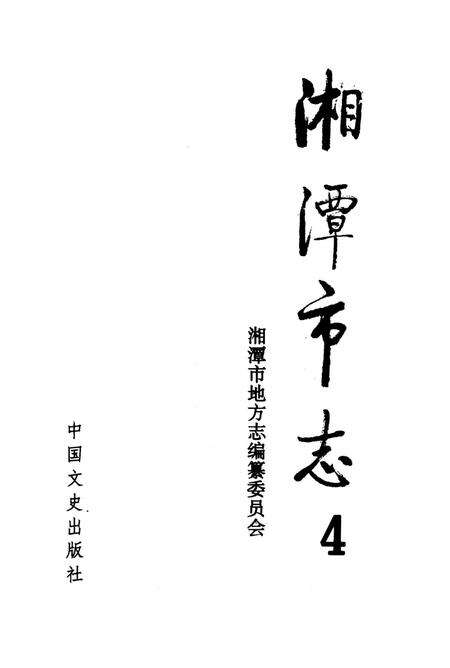 湘潭市志
4
湘潭市地方志编纂委员会
中国文史出版社